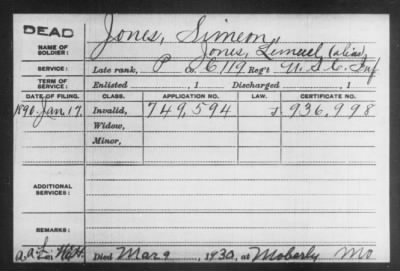 DEAD
Jones, Simeon,
NAME OF SOLDIER:
Jones, Lemuel (alias)
SERVICE:
Late rank, P Co. G 119 Reg't U.S.C. Inf
TERM OF SERVICE:
Enlisted , 1 Discharged , 1
DATE OF FILING. CLASS. APPLICATION NO. LAW. CERTIFICATE NO.
1890 Jan. 17. Invalid, 749,594 J. 936,998
Widow,
Minor,
ADDITIONAL SERVICES:
REMARKS:
Died Mar 9 , 1930, at Moberly Mo